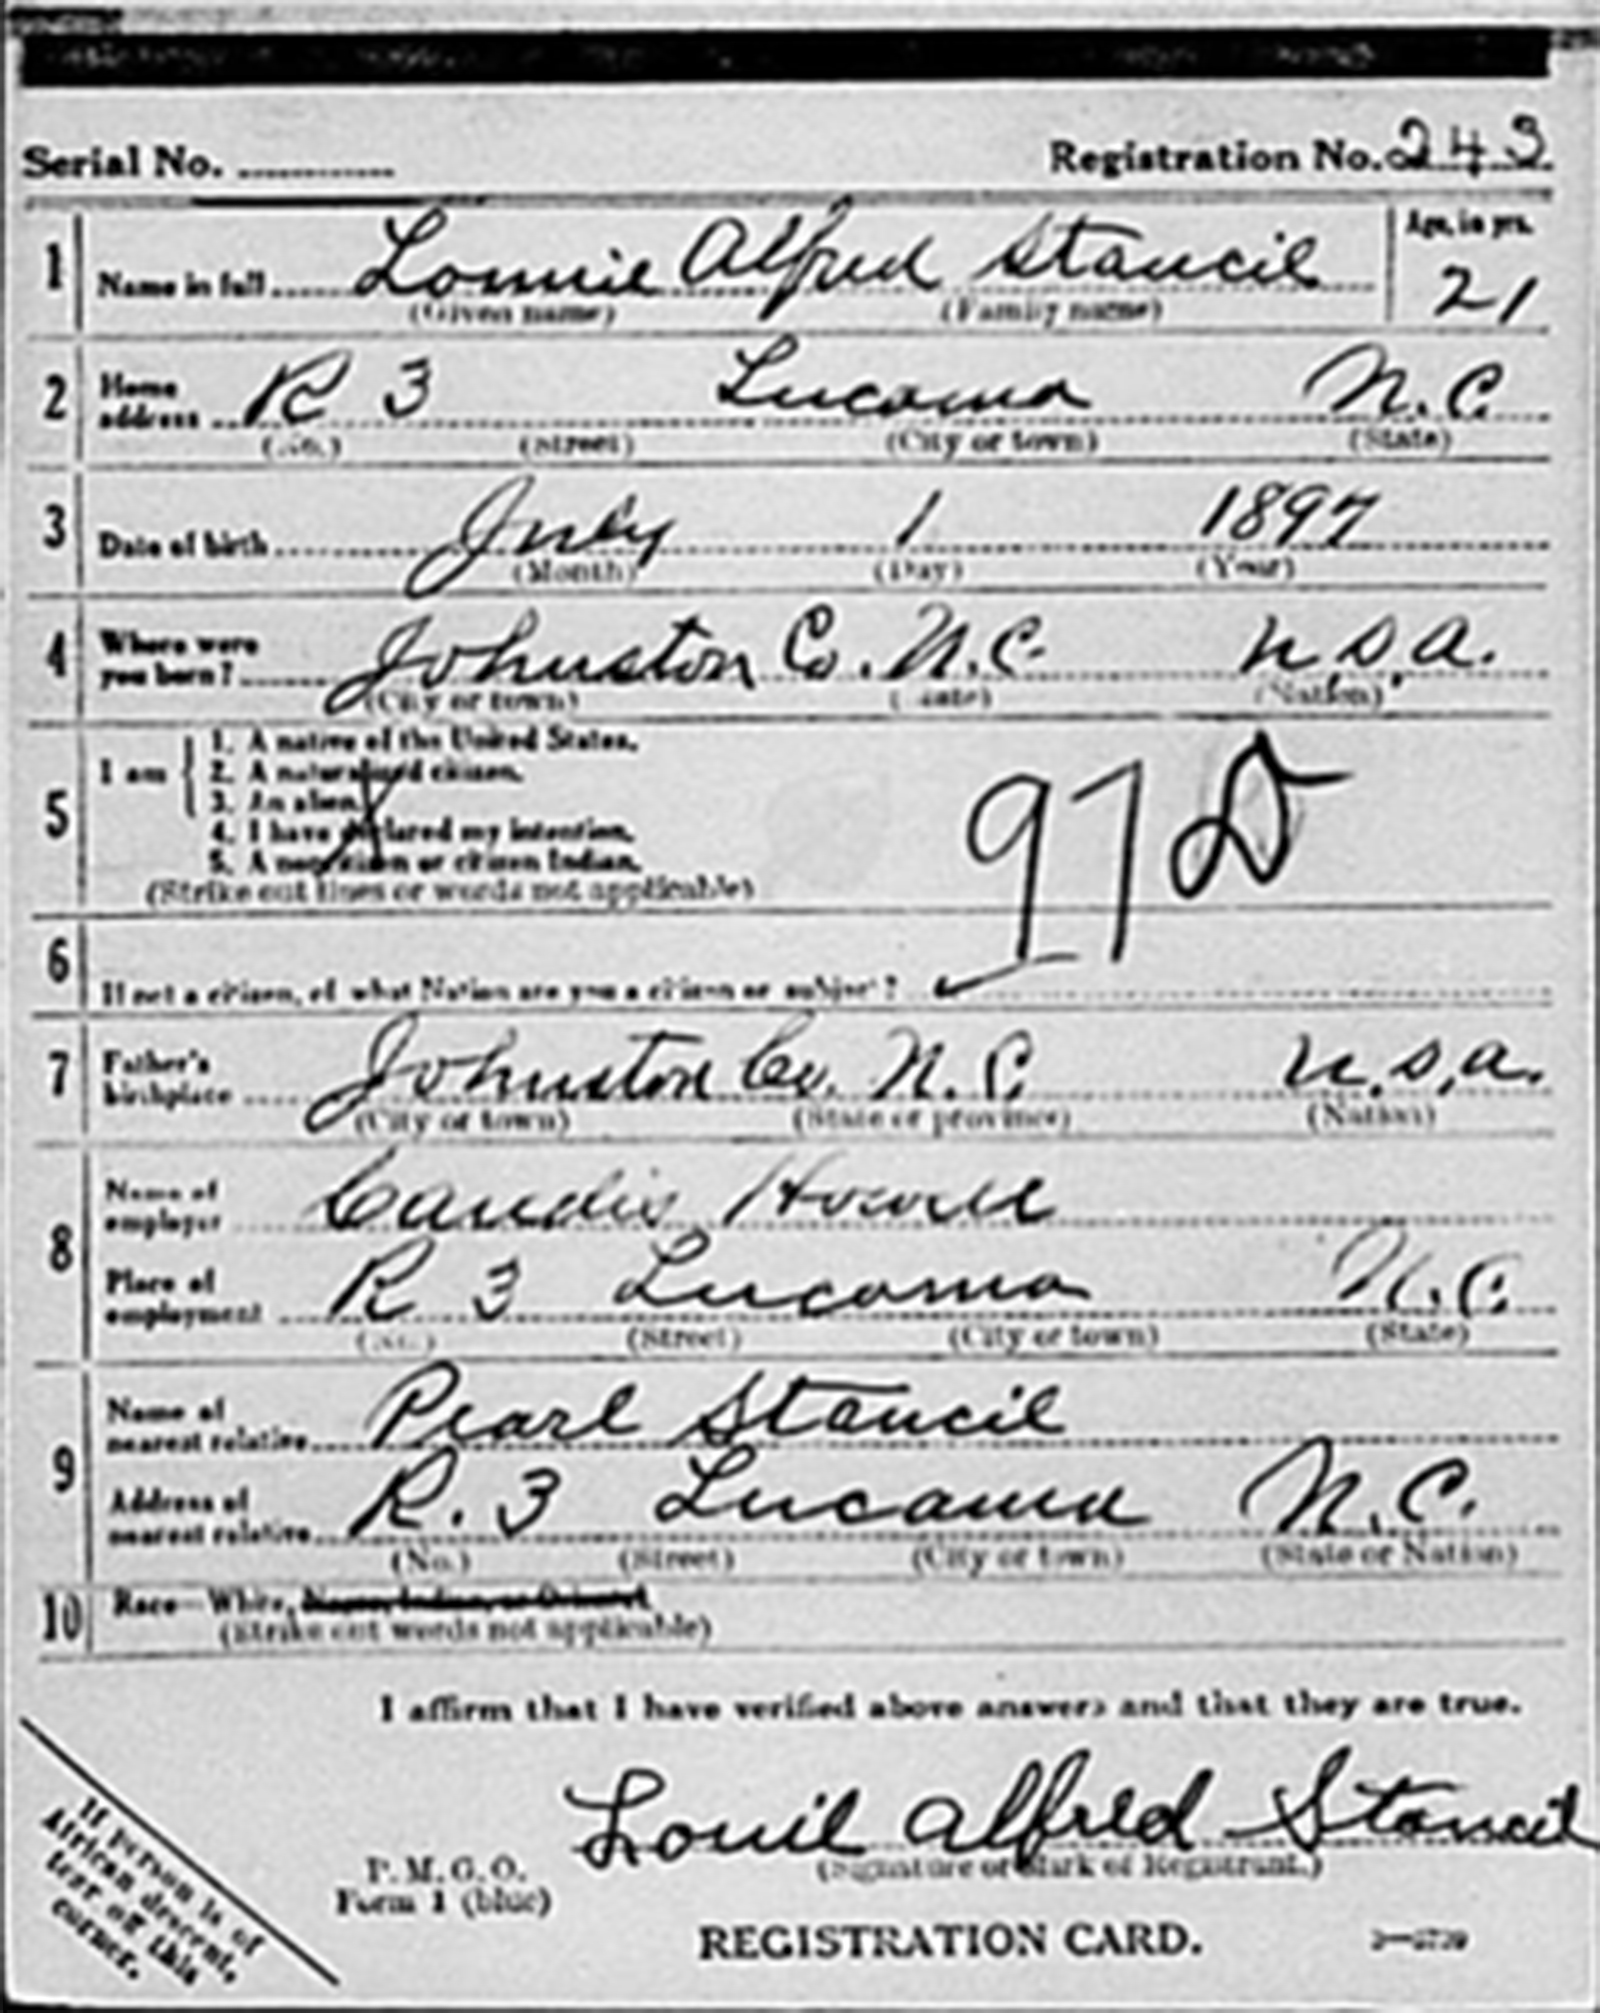 Serial No. ............ Registration No. 243
1 Name in full Lonnie Alfred Stancil Age, in yrs.
(Given name) (Family name) 21
2 Home address R 3 Lucama N.C.
(No.) (Street) (City or town) (State)
3 Date of birth July 1 1897
(Month) (Day) (Year)
4 Where were you born? Johnston Co. N.C. U.S.A.
(City or town) (State) (Nation)
5 I am 1. A native of the United States.
2. A naturalized citizen.
3. An alien.
4. I have declared my intention.
5. A noncitizen or citizen Indian.
(Strike out lines or words not applicable)
97
6 If not a citizen, of what Nation are you a citizen or subject?
7 Father's birthplace Johnston Co. N.C. U.S.A.
(City or town) (State or province) (Nation)
8 Name of employer Candis Howell
Place of employment R 3 Lucama N.C.
(No.) (Street) (City or town) (State)
9 Name of nearest relative Pearl Stancil
Address of nearest relative R. 3 Lucama N.C.
(No.) (Street) (City or town) (State or Nation)
10 Race—White, Negro, Indian, or Oriental
(Strike out words not applicable)
I affirm that I have verified above answers and that they are true.
Lonie Alfred Stancil
(Signature or Mark of Registrant.)
P. M. G. O.
Form 1 (blue)
REGISTRATION CARD.
If person is of
African descent,
tear off this
corner.